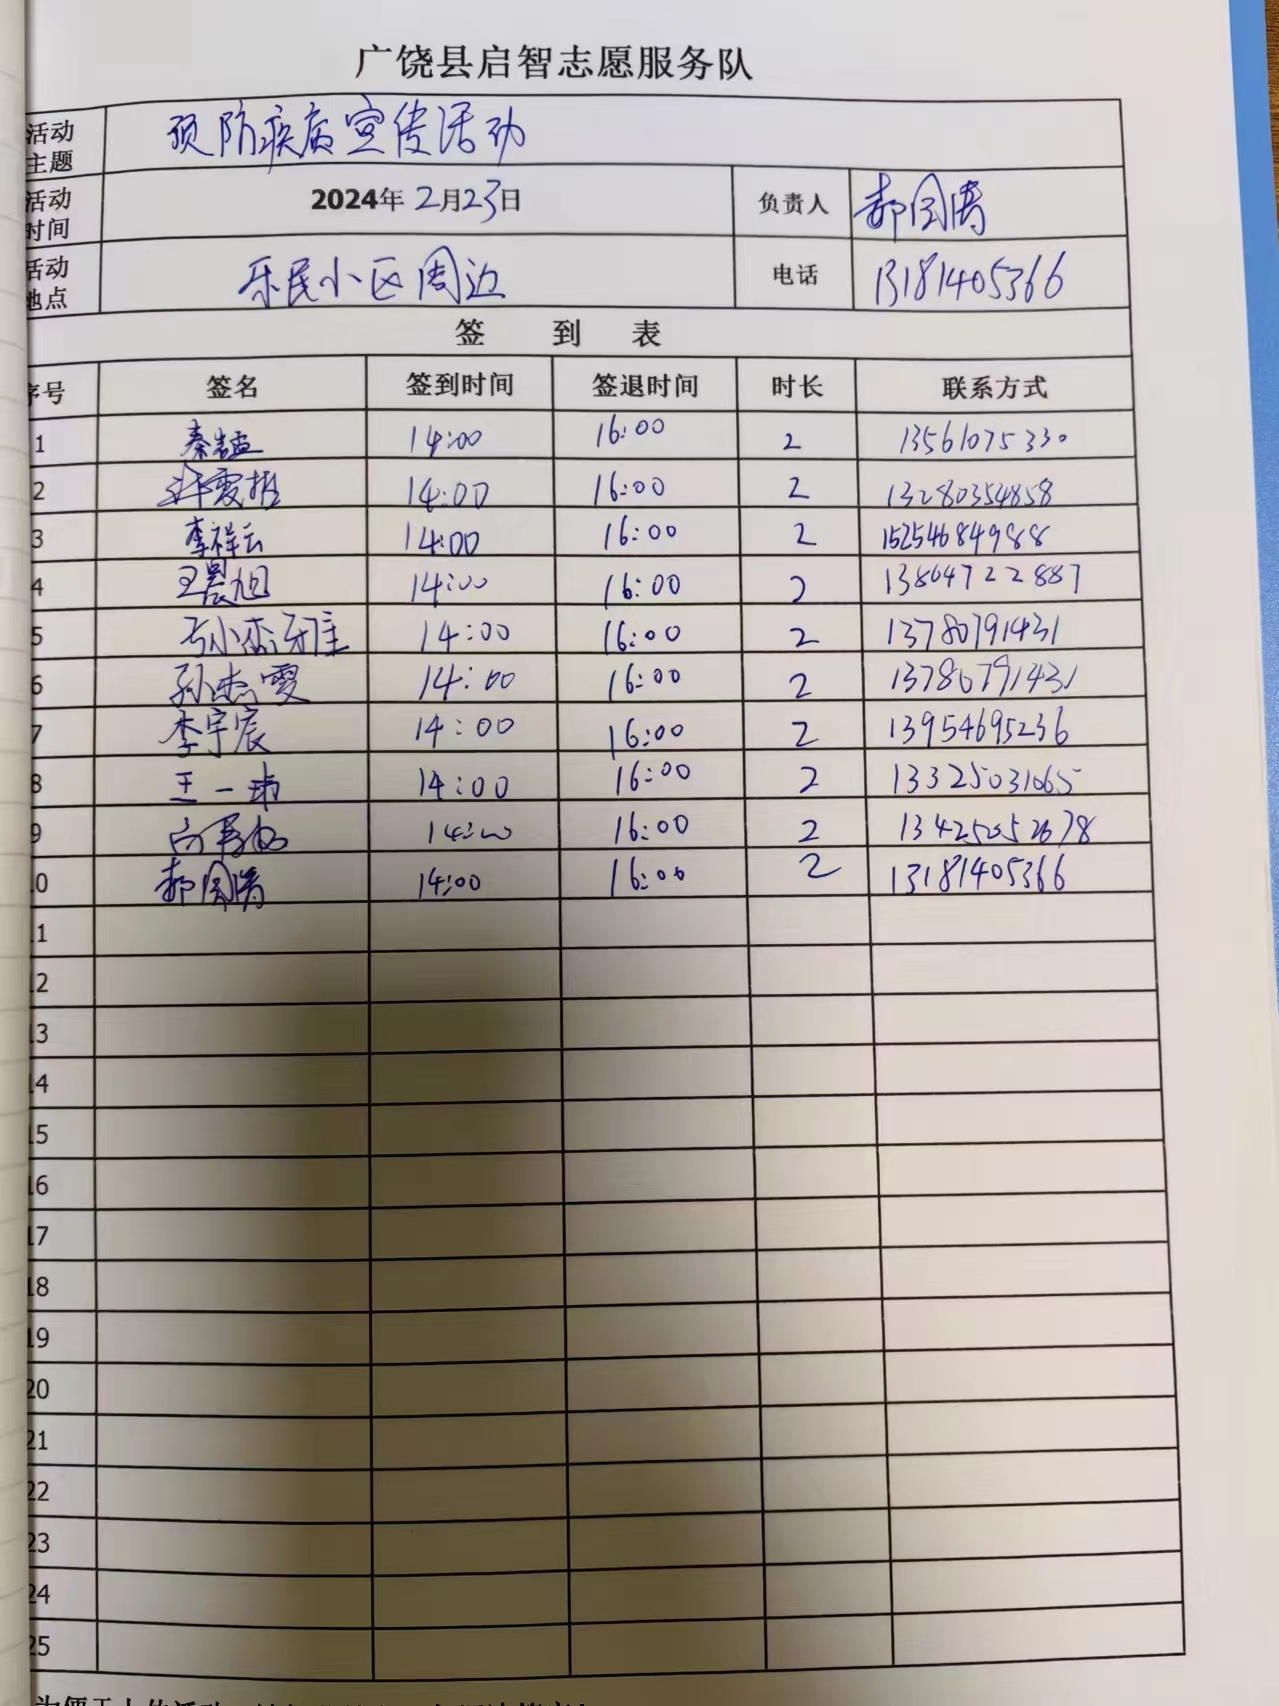 广饶县启智志愿服务队
活动主题 预防疾病宣传活动
活动时间 2024年2月23日 负责人 郝国涛
活动地点 乐民小区周边 电话 13181405366
签 到 表
序号 签名 签到时间 签退时间 时长 联系方式
1 秦 14:00 16:00 2 13561075330
2 14:00 16:00 2 13280354858
3 李祥云 14:00 16:00 2 15254684988
4 王晨旭 14:00 16:00 2 13864722887
5 14:00 16:00 2 13780791431
6 孙杰雯 14:00 16:00 2 13780791431
7 李宇宸 14:00 16:00 2 13954695236
8 王一琳 14:00 16:00 2 13325031065
9 14:00 16:00 2
10 郝国涛 14:00 16:00 2 13181405366
11
12
13
14
15
16
17
18
19
20
21
22
23
24
25